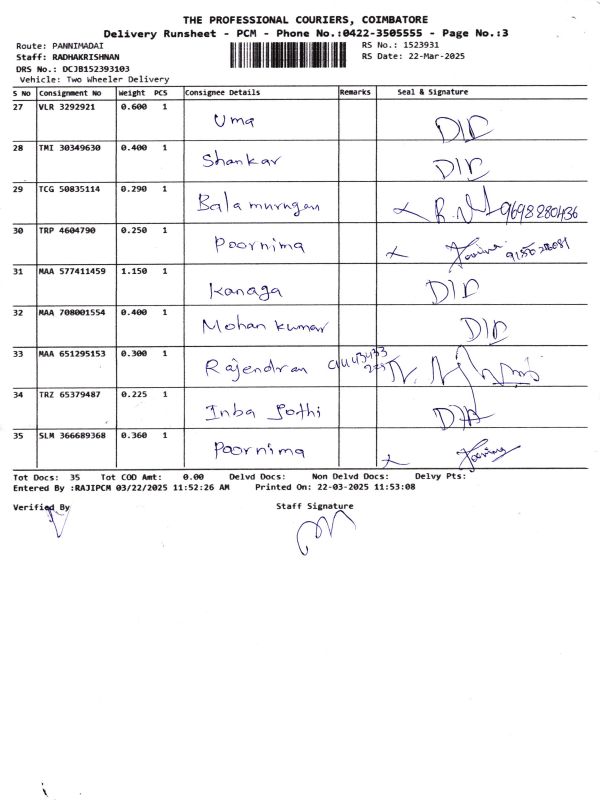 THE PROFESSIONAL COURIERS, COIMBATORE
Delivery Runsheet - PCM - Phone No.:0422-3505555 - Page No.:3
Route: PANNIMADAI RS No.: 1523931
Staff: RADHAKRISHNAN RS Date: 22-Mar-2025
DRS No.: DCJB152393103
Vehicle: Two Wheeler Delivery
S No Consignment No Weight PCS Consignee Details Remarks Seal & Signature
27 VLR 3292921 0.600 1 Uma
28 TMI 30349630 0.400 1 Shankar
29 TCG 50835114 0.290 1 Balamurugan 9698280436
30 TRP 4604790 0.250 1 Poornima
31 MAA 577411459 1.150 1 Kanaga
32 MAA 708001554 0.400 1 Mohan kumar
33 MAA 651295153 0.300 1 Rajendran
34 TRZ 65379487 0.225 1 Inba Jothi
35 SLM 366689368 0.360 1 Poornima
Tot Docs: 35 Tot COD Amt: 0.00 Delvd Docs: Non Delvd Docs: Delvy Pts:
Entered By :RAJIPCM 03/22/2025 11:52:26 AM Printed On: 22-03-2025 11:53:08
Verified By Staff Signature